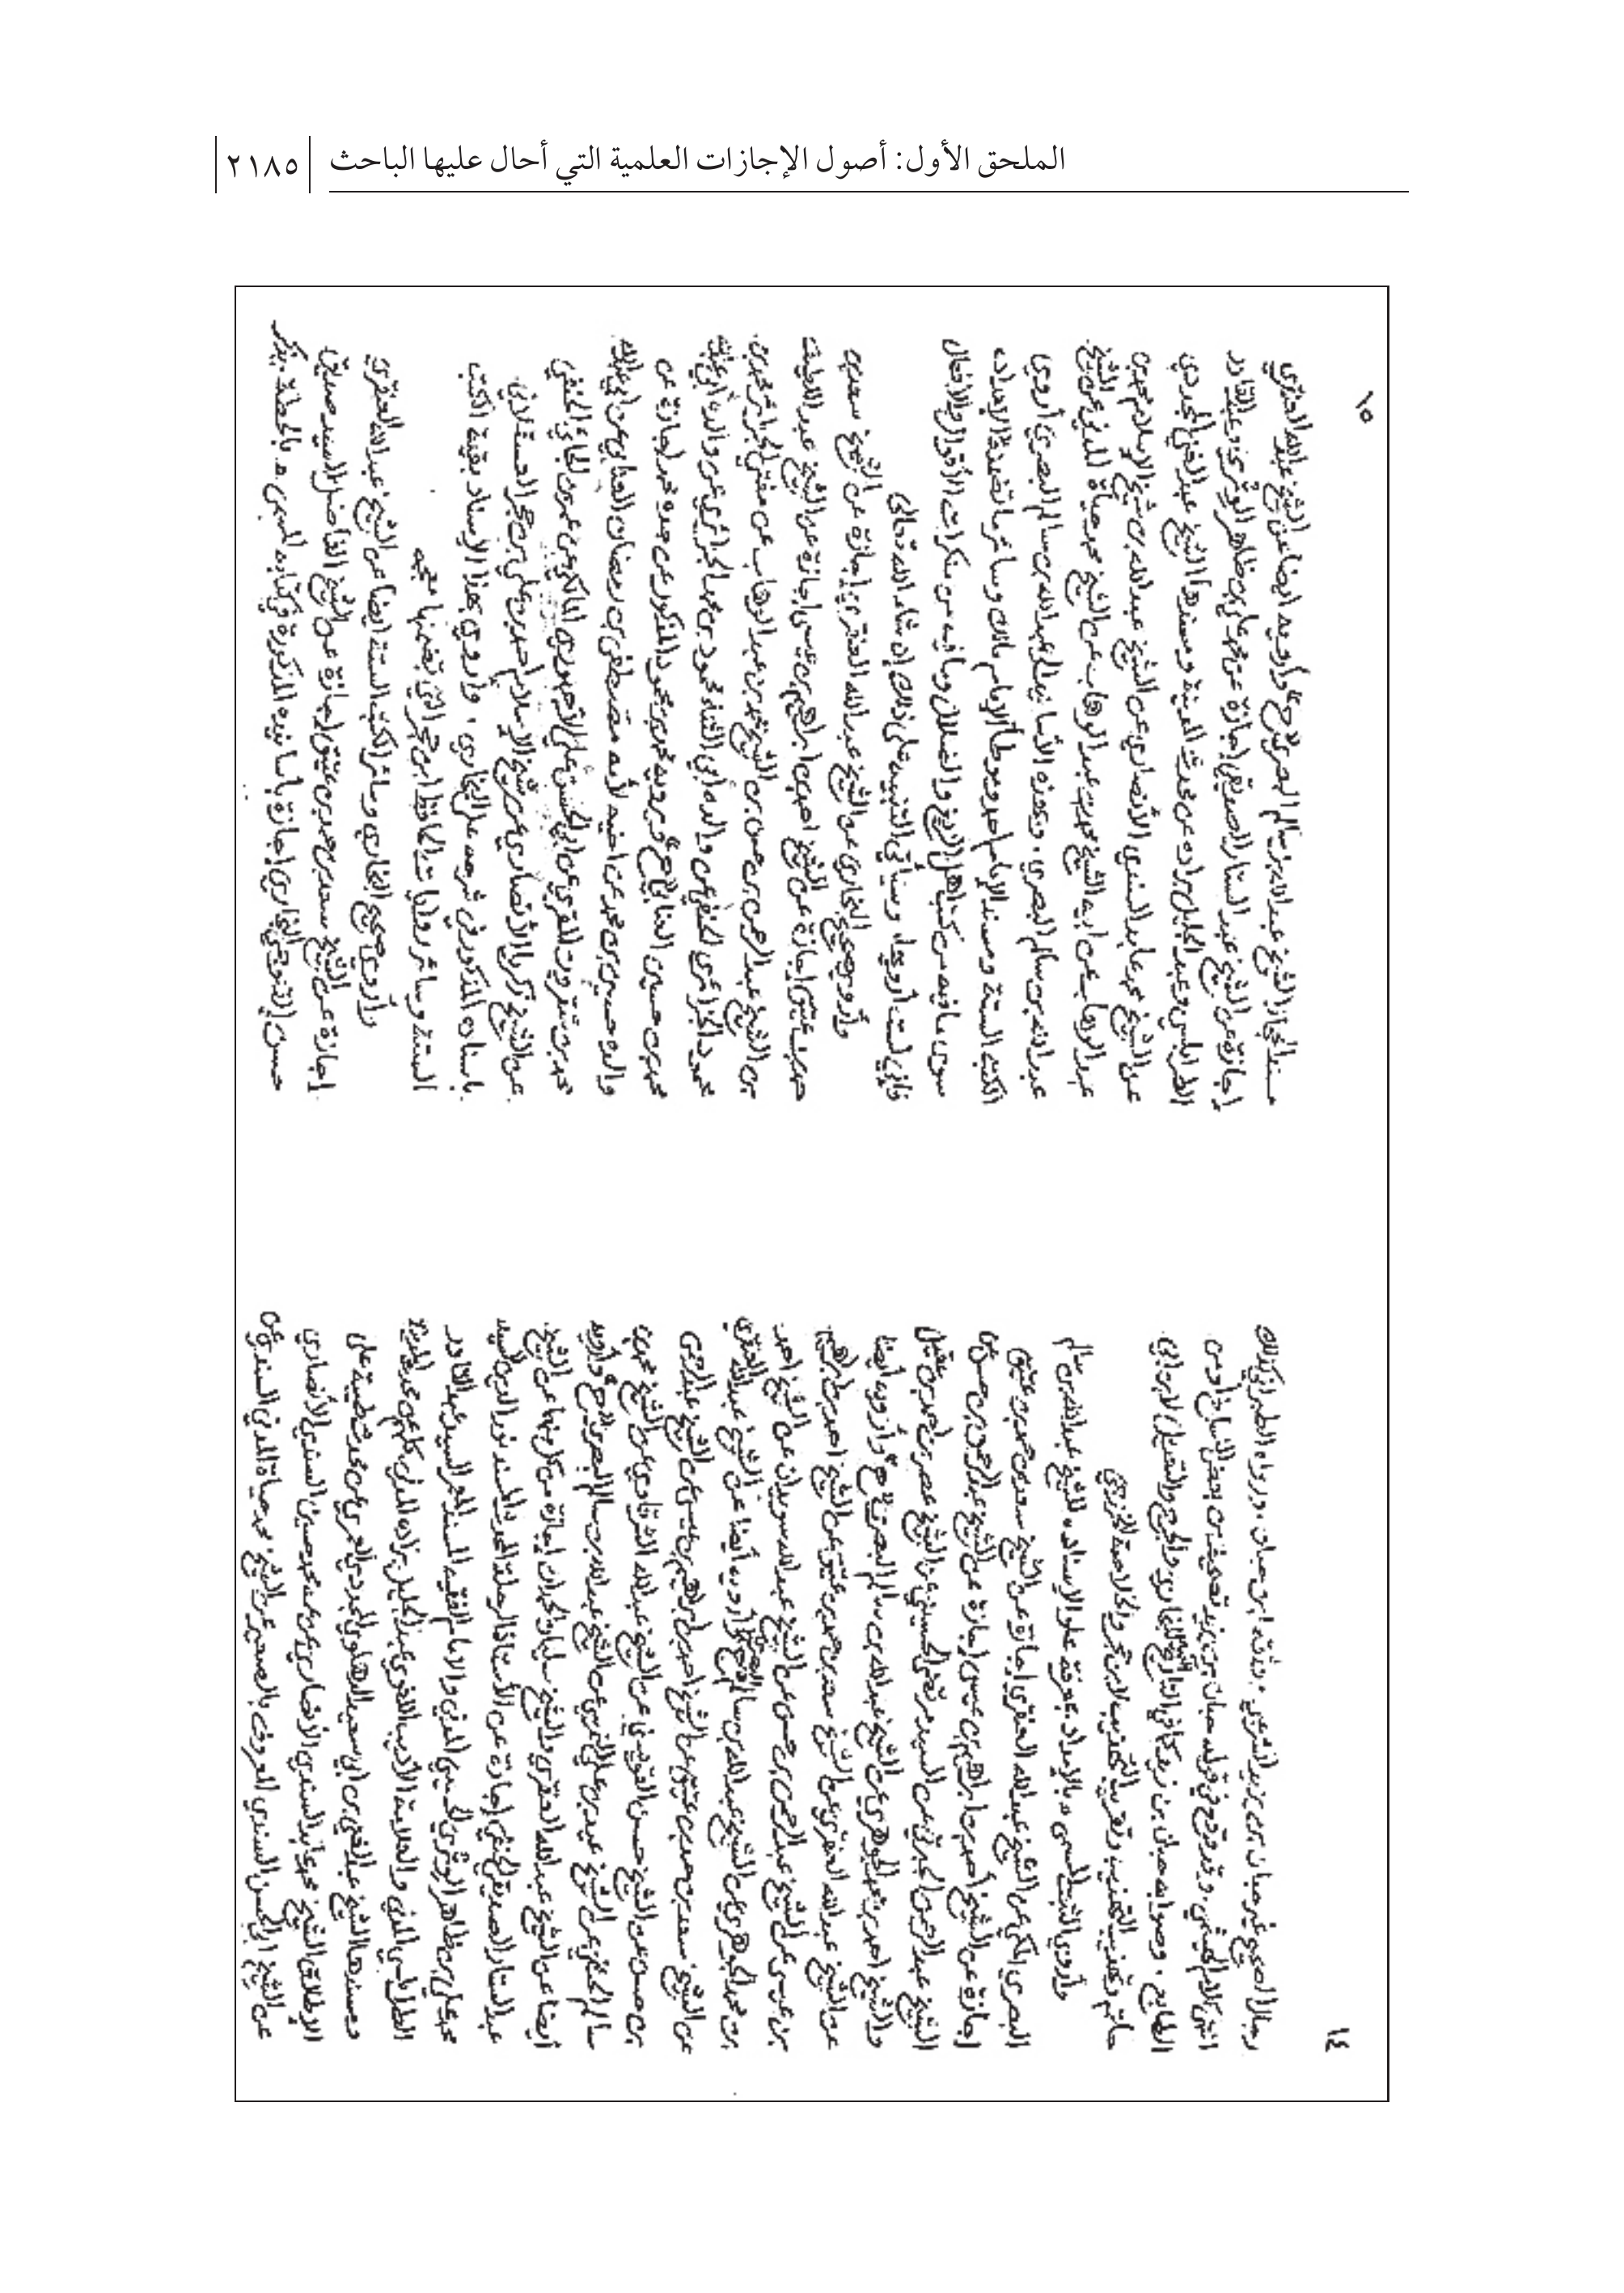 الملحق الأول: أصول الإجازات العلمية التي أحال عليها الباحث ٢١٨٥
١٤
رجال الصحيح غير حبان بن يزيد الشرعبي، وثقه ابن حبان. ورواه الطبراني كذلك
انتهى كلام الهيثمي، وقد وقع في قوله حبان بن يزيد تصحيف من بعض النساخ أو من
الطابع، وصوابه حبان بن زيد كما في التاريخ الكبير للبخاري والجرح والتعديل لابن أبي
حاتم وتهذيب التهذيب وتقريب التهذيب لابن حجر والخلاصة للخزرجي
وأروي الثبت المسمى بالإمداد بمعرفة علو الإسناد للشيخ عبد الله بن سالم
البصري المكي عن الشيخ عبد الله العنقري إجازة عن الشيخ سعد بن حمد بن عتيق
إجازة عن الشيخ أحمد بن إبراهيم بن عيسى إجازة عن الشيخ عبد الرحمن بن حسن عن
الشيخ عبد الرحمن الجبرتي عن السيد مرتضى الحسيني عن الشيخ عمر بن أحمد بن عقيل
والشيخ أحمد بن محمد الجوهري عن الشيخ عبد الله بن سالم البصري ح وأرويه أيضا
عن الشيخ عبد الله العنقري عن الشيخ سعد بن حمد بن عتيق عن الشيخ أحمد بن إبراهيم
بن عيسى عن الشيخ عبد الرحمن بن حسن عن الشيخ عبد الله سويدان عن الشيخ أحمد
بن محمد الجوهري عن الشيخ عبد الله بن سالم البصري ح وأرويه أيضا عن الشيخ عبد الله العنقري
عن الشيخ سعد بن حمد بن عتيق عن الشيخ أحمد بن إبراهيم بن عيسى عن الشيخ عبد الرحمن
بن حسن عن الشيخ حسن القويسني عن الشيخ عبد الله الشرقاوي عن الشيخ محمد بن
سالم الحفني عن الشيخ عيد بن علي النمرسي عن الشيخ عبد الله بن سالم البصري ح وأرويه
أيضا عن الشيخ عبد الله العنقري والشيخ سليمان الحمدان إجازة من كل منهما عن الشيخ
عبد الستار الصديقي الحنفي إجازة عن الأستاذ الرحلة المحدث المسند نور الدين السيد
محمد علي بن ظاهر الوتري الحسيني المدني والإمام الفقيه المسند المعمر السيد عبد القادر
الطرابلسي المدني والعلامة الأديب اللغوي عبد الجليل براده المدني كلهم عن محدث المدينة
ومسندها الشيخ عبد الغني بن أبي سعيد الدهلوي المجددي العمري عن محدث طيبة على
الإطلاق الشيخ محمد عابد السندي الأنصاري عن عمه محمد حسين السندي الأنصاري
عن الشيخ أبي الحسن السندي المعروف بالصغير عن الشيخ محمد حياة المدني السندي عن
١٥
مسند الحجاز الشيخ عبد الله بن سالم البصري ح وأرويه أيضا عن الشيخ عبد الله العنقري
إجازة عن الشيخ عبد الستار الصديقي إجازة عن محمد علي بن ظاهر الوتري وعبد القادر
الطرابلسي وعبد الجليل براده عن محدث المدينة ومسندها الشيخ عبد الغني المجددي
عن الشيخ محمد عابد السندي الأنصاري عن الشيخ عبد الله بن شيخ الإسلام محمد بن
عبد الوهاب عن أبيه الشيخ محمد بن عبد الوهاب عن الشيخ محمد حياة المدني عن الشيخ
عبد الله بن سالم البصري. وبهذه الأسانيد إلى عبد الله بن سالم البصري أروي
الكتب الستة ومسند الإمام أحمد وموطأ الإمام مالك وسائر ما تضمنه الإمداد
سوى ما فيه من كتب أهل الزيغ والضلال وما فيه من منكرات الأقوال والأفعال
فإني لست أرويها، وسيأتي التنبيه على ذلك إن شاء الله تعالى
وأروي صحيح البخاري عن الشيخ عبد الله العنقري إجازة عن الشيخ سعد بن
حمد بن عتيق إجازة عن الشيخ أحمد بن إبراهيم بن عيسى إجازة عن الشيخ عبد اللطيف
بن الشيخ عبد الرحمن بن حسن بن الشيخ محمد بن عبد الوهاب عن مفتي الجزائر محمد بن
محمود الجزائري الحنفي عن والده أبي الثناء محمود بن محمد الجزائري عن والده أبي عبد الله
محمد بن حسين العنابي ح ويرويه محمد بن محمود المذكور عن جده محمد إجازة عن
والده حسين بن محمد عن أخيه لأمه مصطفى بن رمضان العنابي عن أبي عبد الله
محمد بن شقرون المقري عن أبي الحسن علي الأجهوري المالكي عن عمر بن الجائي الحنفي
عن الشيخ زكريا الأنصاري عن شيخ الإسلام أحمد بن علي بن حجر العسقلاني
بإسناده المذكور في شرحه على البخاري، وأروي بهذا الإسناد بقية الكتب
الستة وسائر روايات الحافظ ابن حجر التي تضمنها معجمه
وأروي صحيح البخاري وسائر الكتب الستة أيضا عن الشيخ عبد الله العنقري
إجازة عن الشيخ سعد بن حمد بن عتيق إجازة عن الشيخ الفاضل السيد صديق
حسن القنوجي البخاري إجازة بأسانيده المذكورة في كتابه المسمى بالحطة بذكر